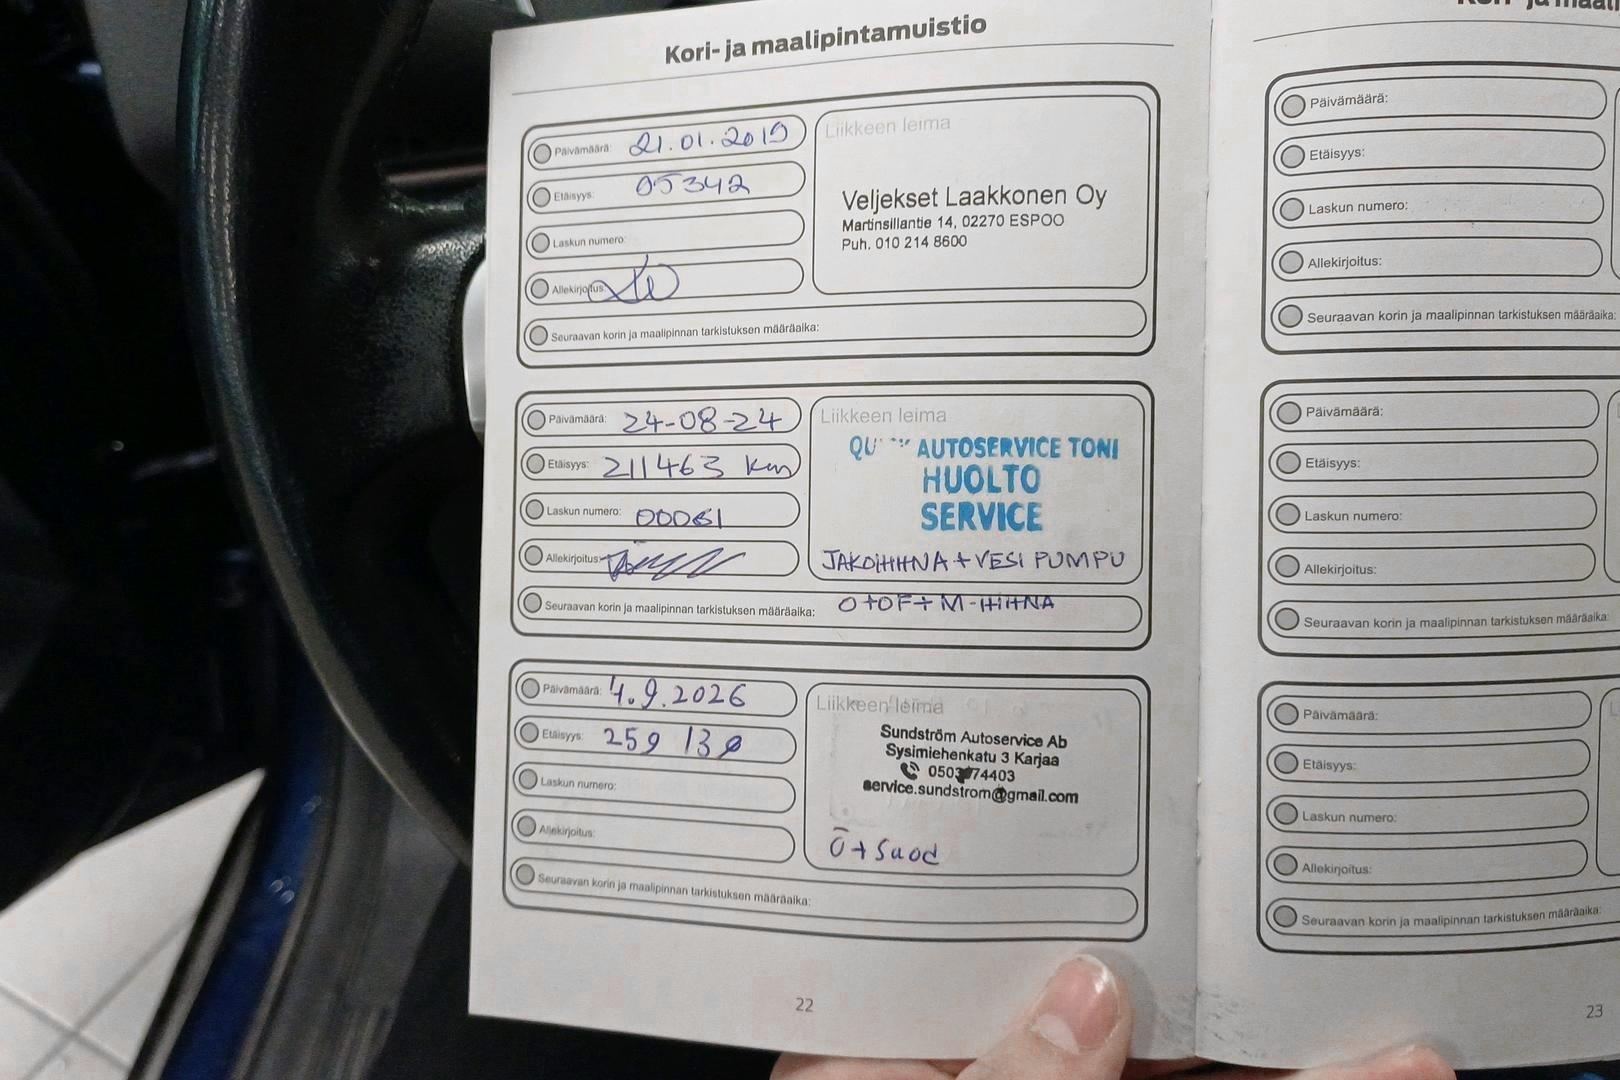 Kori- ja maalipintamuistio
Päivämäärä: 21.01.2019
Etäisyys: 05342
Laskun numero:
Allekirjoitus:
Liikkeen leima
Veljekset Laakkonen Oy
Martinsillantie 14, 02270 ESPOO
Puh. 010 214 8600
Seuraavan korin ja maalipinnan tarkistuksen määräaika:
Päivämäärä: 24-08-24
Etäisyys: 211463 km
Laskun numero: 00061
Allekirjoitus:
Liikkeen leima
AUTOSERVICE TONI
HUOLTO
SERVICE
JAKOIHHNA + VESI PUMPU
Seuraavan korin ja maalipinnan tarkistuksen määräaika: O+OF+M-HIHNA
Päivämäärä: 4.9.2026
Etäisyys: 259 130
Laskun numero:
Allekirjoitus:
Liikkeen leima
Sundström Autoservice Ab
Sysimiehenkatu 3 Karjaa
service.sundstrom@gmail.com
Ö+Suod
Seuraavan korin ja maalipinnan tarkistuksen määräaika:
22
Päivämäärä:
Etäisyys:
Laskun numero:
Allekirjoitus:
Seuraavan korin ja maalipinnan tarkistuksen määräaika:
Päivämäärä:
Etäisyys:
Laskun numero:
Allekirjoitus:
Seuraavan korin ja maalipinnan tarkistuksen määräaika:
Päivämäärä:
Etäisyys:
Laskun numero:
Allekirjoitus:
Seuraavan korin ja maalipinnan tarkistuksen määräaika:
23